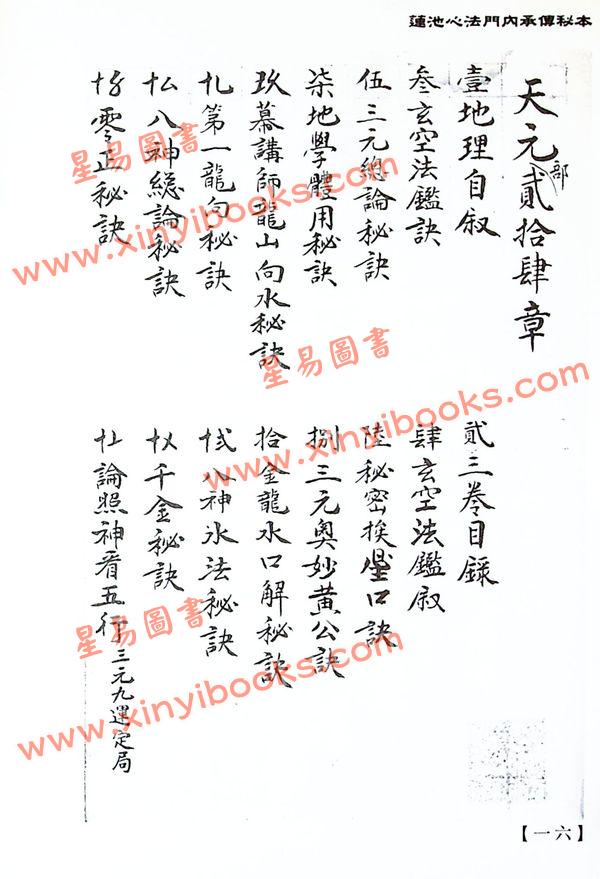 蓮池心法門內承傳秘本
天元部貳拾肆章
壹地理自叙
貳三卷目録
叁玄空法鑑訣
肆玄空法鑑叙
伍三元總論秘訣
陸秘密挨星口訣
柒地學體用秘訣
捌三元奧妙黃公訣
玖幕講師龍山向水秘訣
拾金龍水口解秘訣
第一龍向秘訣
八神水法秘訣
八神總論秘訣
千金秘訣
零正秘訣
論照神看五行三元九運定局
【一六】
星易圖書
www.xinyibooks.com
星易圖書
www.xinyibooks.com
星易圖書
www.xinyibooks.com
星易圖書
www.xinyibooks.com